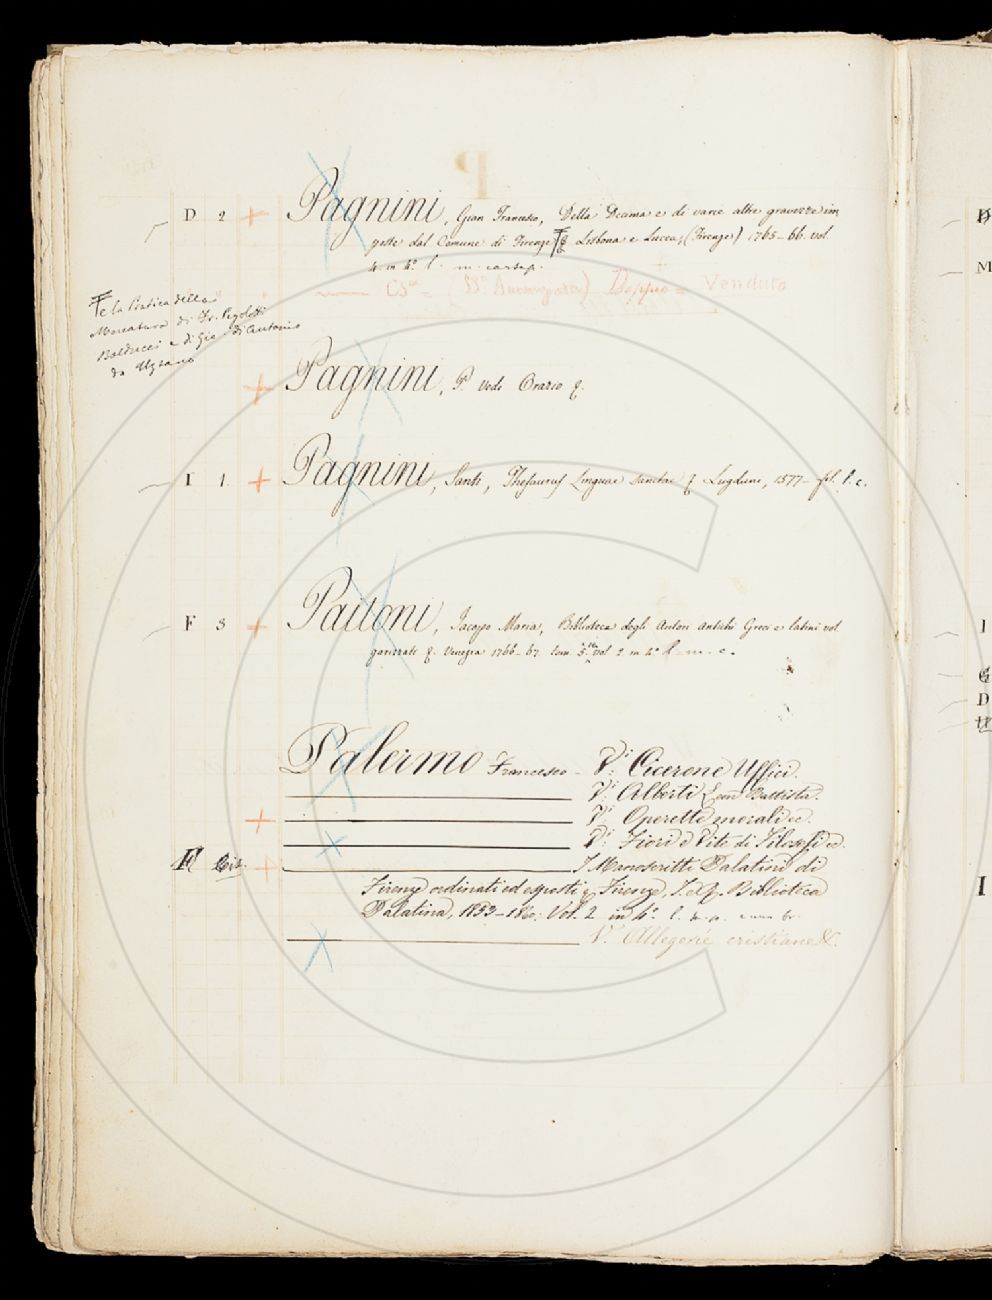 P
D 2 + Pagnini, Gian Francesco, Della Decima e di varie altre gravezze im
poste dal Comune di Firenze, Lisbona e Lucca, (Firenze) 1765-66. vol.
4. in 4.º l. m. cartap.
Doppio = Venduto
e la Pratica della
Mercatura di Fr. Pegolotti
Balducci e di Gio. di Antonio
da Uzzano
+ Pagnini, P. Vedi Orazio
I 1. + Pagnini, Santi, Thesaurus Linguae Sanctae Lugduni, 1577- fol. l. c.
F 3 + Paitoni, Jacopo Maria, Biblioteca degli Autori Antichi Greci e latini vol
garizzati Venezia 1766-67. tom. 5. vol 2. in 4º l. m. c.
Palermo Francesco - Vi Cicerone Uffici.
Vi Alberti Leon Battista.
+ Vi Operette morali ec.
Vi Fiori e Vite di Filosofi ec.
+ I Manoscritti Palatini di
Firenze ordinati ed esposti Firenze, Biblioteca
Palatina, 1853-1860. Vol. 2 in 4º
Vi Allegorie cristiane &c.
D
M
I
G
D
I